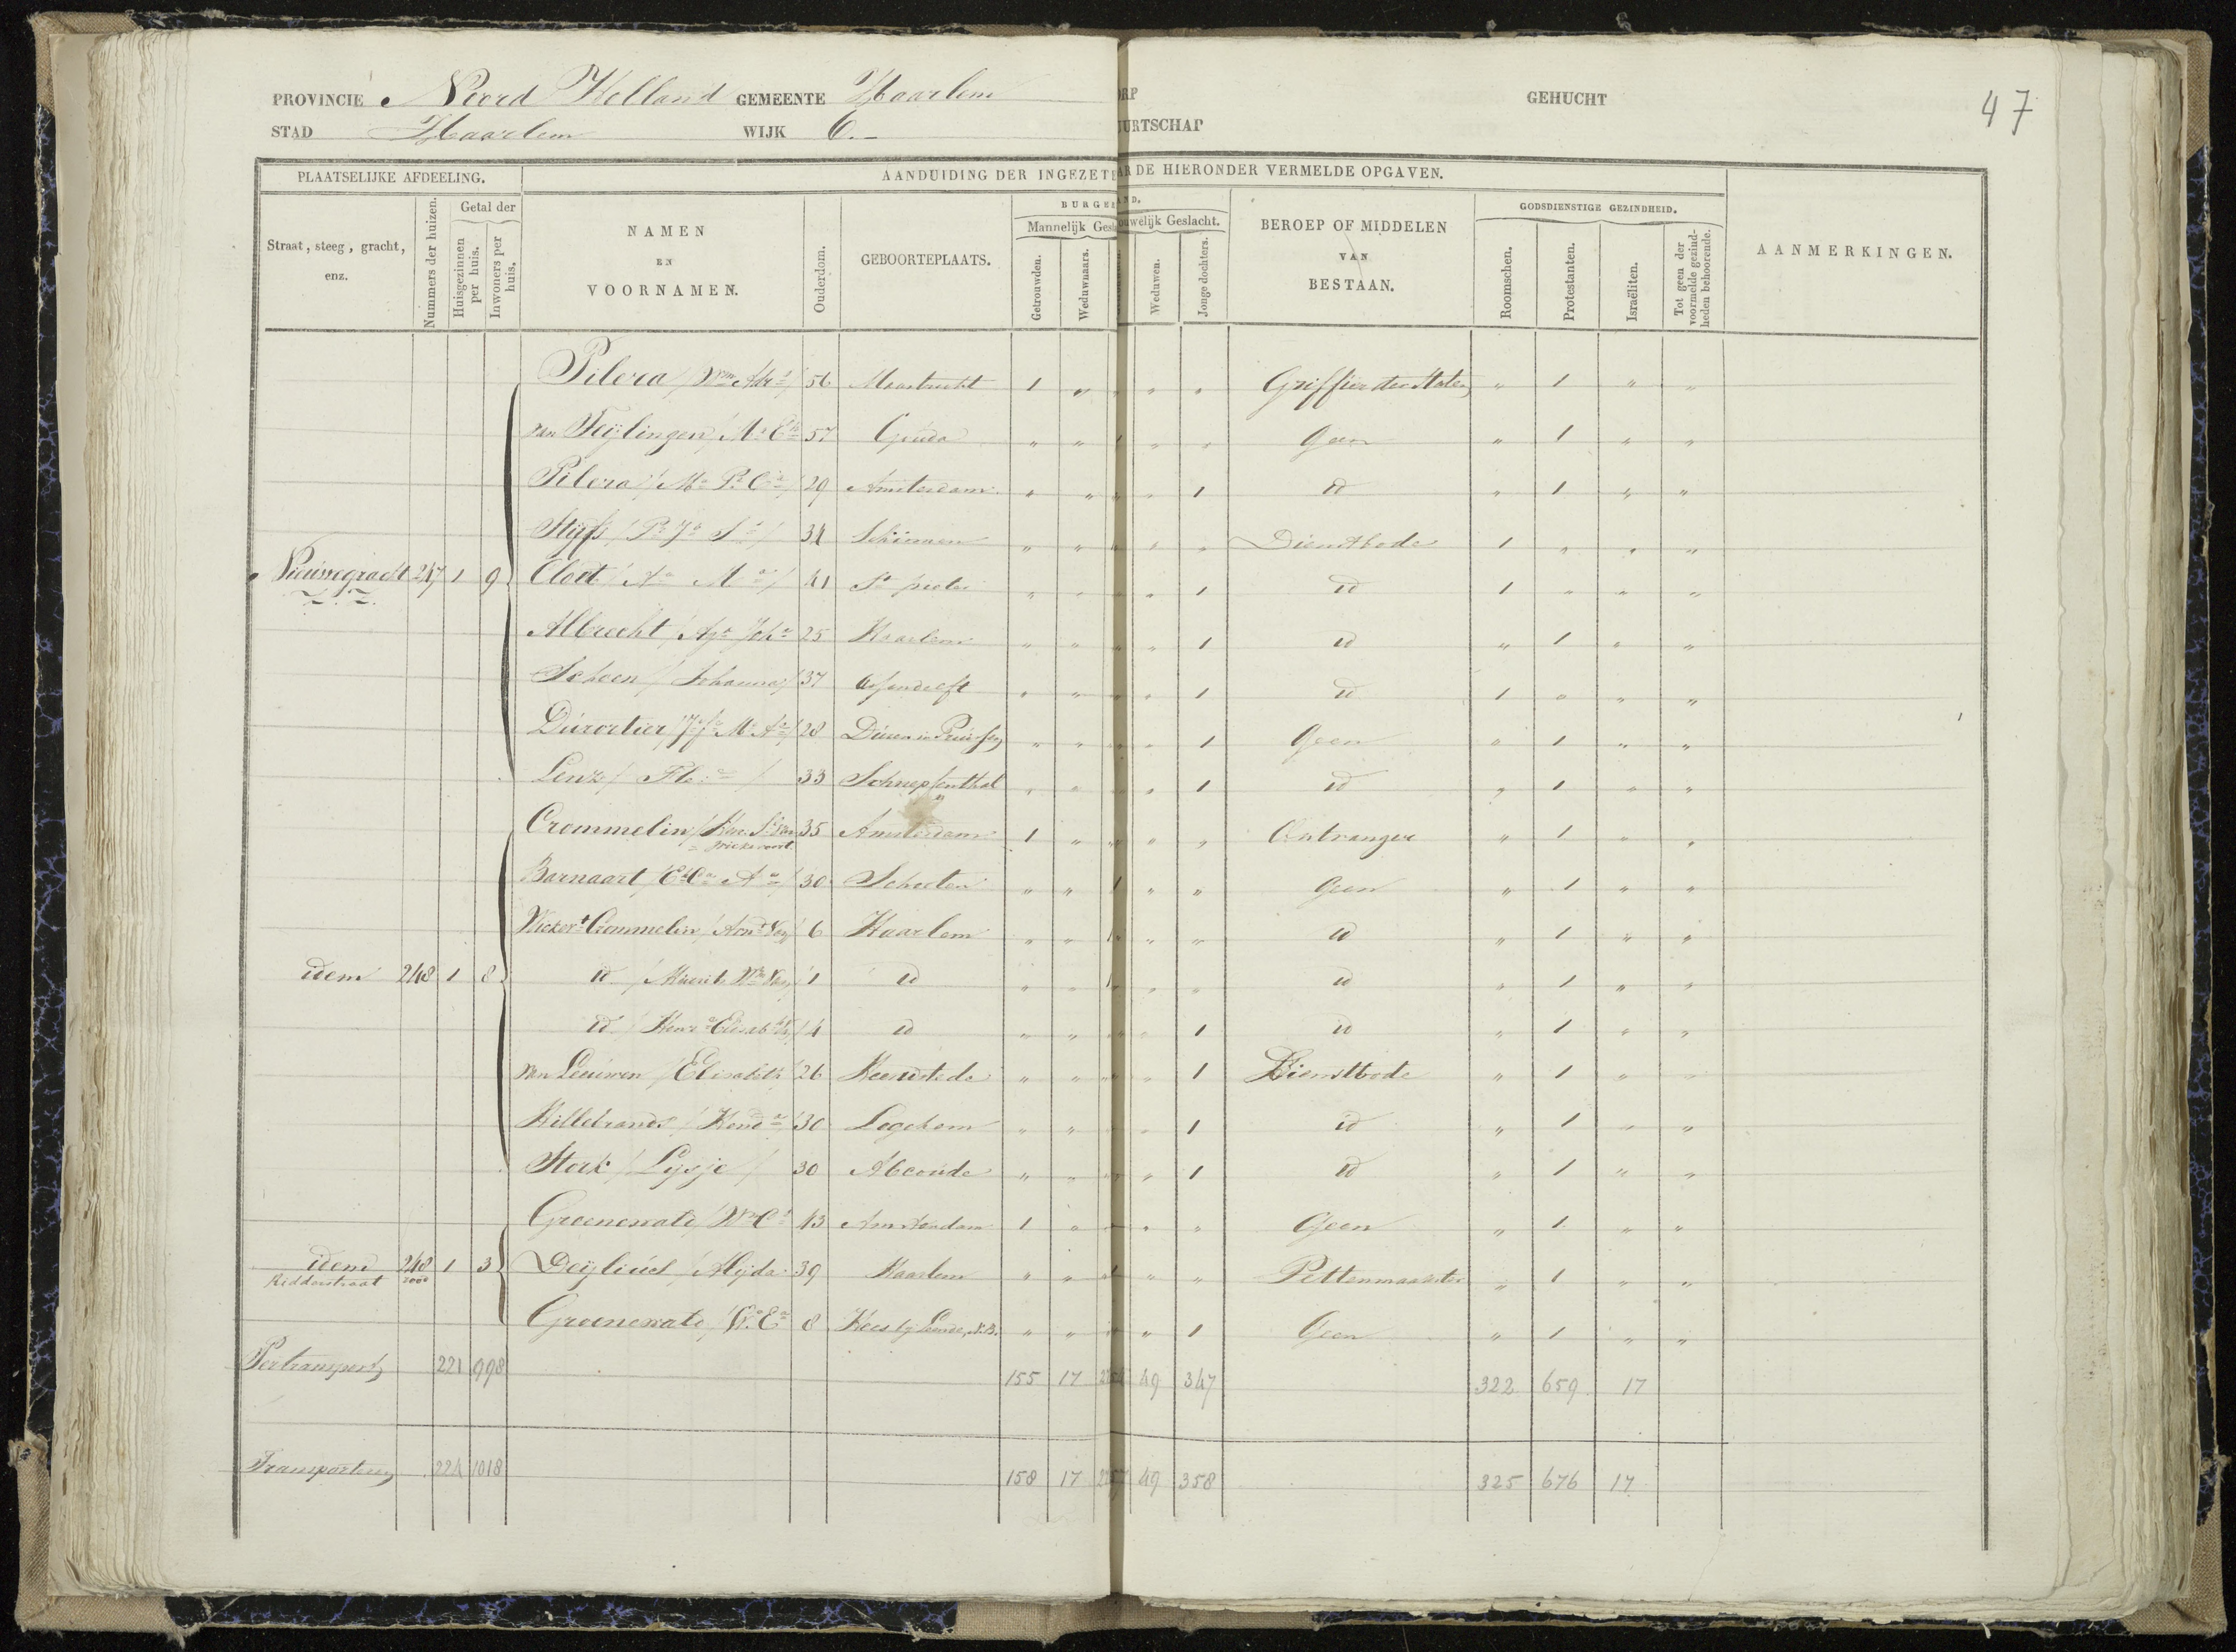 PROVINCIE Noord Holland GEMEENTE Haarlem ORP GEHUCHT 47
STAD Haarlem WIJK 6.- UURTSCHAP
PLAATSELIJKE AFDEELING. AANDUIDING DER INGEZETE AR DE HIERONDER VERMELDE OPGAVEN.
Straat, steeg, gracht, enz. Nummers der huizen. Getal der Huisgezinnen per huis. Inwoners per huis. NAMEN EN VOORNAMEN. Ouderdom. GEBOORTEPLAATS. BURGE AND. Mannelijk Gesl ouwelijk Geslacht. Getrouwden. Weduwnaars. Weduwen. Jonge dochters. BEROEP OF MIDDELEN VAN BESTAAN. GODSDIENSTIGE GEZINDHEID. Roomschen. Protestanten. Israëliten. Tot geen der voormelde gezindheden behoorende. AANMERKINGEN.
Pilera / Wm Adr / 56 Maastricht 1 " " " Griffier der Staten " 1 " "
van Teijlingen / Ma C 57 Gouda " " 1 " " Geen " 1 " "
Pilera / Ma Pa Ca / 29 Amsterdam " " " " 1 id " 1 " "
Stijfs / 34 Schinnen " " " " Dienstbode 1 " " "
Nieuwegracht Z.Z. 247 1 9 Cloet / Aa Ma / 41 St pieter " " " 1 id 1 " " "
Albrecht / Aga Joha 25 Haarlem " " " " 1 id " 1 " "
Scheen / Johanna / 37 Assendelft " " " " 1 id 1 " " "
Durortier / Ma Aa / 28 Düren in Pruissen " " " " 1 Geen " 1 " "
Lenz / 33 Schnepfenthal " " " " 1 id " 1 " "
Crommelin / Hen. Sl van 35 Amsterdam 1 " " " " Ontvanger " 1 " "
Wickevoort
Barnaart / Aa / 30 Schoten " " 1 " " Geen " 1 " "
Wickevt Crommelin / Arnd Van 6 Haarlem " " 1 " " id " 1 " "
idem 248 1 8 id / Maurits Wm Van / 1 id " " 1 " " id " 1 " "
id / Henra Elisabth 4 id " " " " 1 id " 1 " "
van Leeuwen / Elisabeth 26 Heemstede " " " " 1 Dienstbode " 1 " "
Hillebrands / Hend a 30 Lochem " " " " 1 id " 1 " "
Stork / Lijsje / 30 Abcoude " " " " 1 id " 1 " "
Groenewald / Wm 43 Amsterdam 1 " " " " Geen " 1 " "
idem 248 1 3 Deijlius / Alijda 39 Haarlem " " 1 " " Pettenmaakster " 1 " "
Ridderstraat rood
Groenewald / 8 Hees bij Leende, N.B. " " " " 1 Geen " 1 " "
Pertransport 221 998 155 17 49 347 322 659 17
Transporteren 224 1018 158 17 49 358 325 676 17